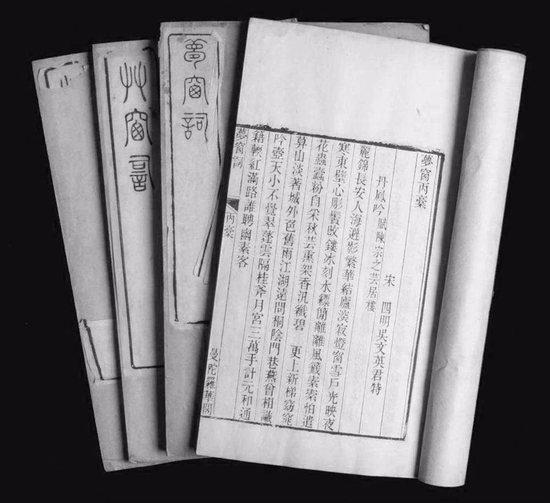 夢窗丙稾
宋 四明吳文英君特
丹鳳吟 賦陳宗之芸居樓
麗錦長安人海避影繁華結廬深寂燈窗雪戶光映夜
寒東壁心彫鬢改鏤冰刻水縹簡離離風籤索索怕遺
花蟲蠹粉自采秋芸熏架香泛纖碧 更上新梯窈窕
暮山淡著城外色舊雨江湖遠問桐陰門巷燕曾相識
吟壺天小不覺翠蓬雲隔桂斧月宮三萬手計元和通
籍輭紅滿路誰聘幽素客
夢窗詞 丙稾
曼陀羅華閣
夢窗詞
艸窗詞